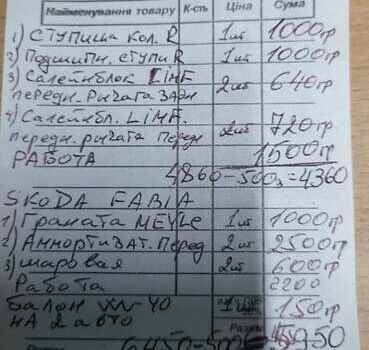 Найменування товару К-сть Ціна Сума
1) СТУПИЦА КОЛ. R 1шт 1000гр
2) Подшипн. ступи R 1шт 1000гр
3) Салентблок LIMF
передн. Рычага ЗАДН 2шт 640гр
4) Салентбл. LIMF.
передн. рычага Перед 2шт 720гр
РАБОТА 1500гр
4860-500=4360
SKODA FABIA
1) Граната MEYLE 1шт 1000гр
2) Аммортизат. Перед 2шт 2500гр
3) шаровая 2шт 600гр
Работа 2200
Балон WV-40 1 150гр
НА 2 авто
6450-500 5950